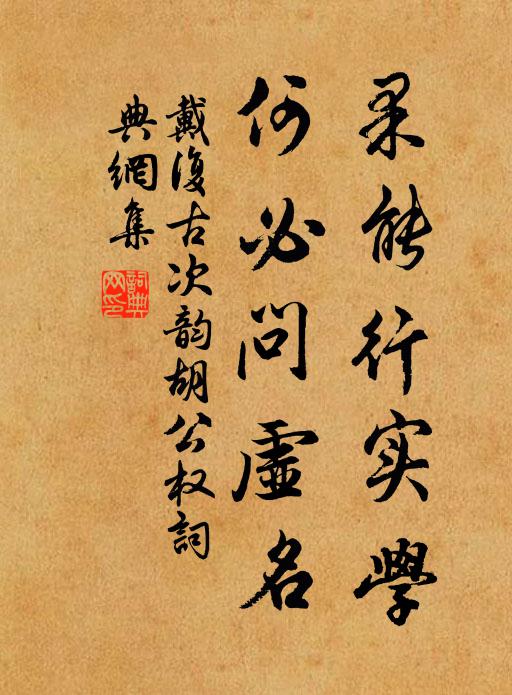 果能行实學
何必問虛名
戴復古次韵胡公权詞
典網集
詞典网印